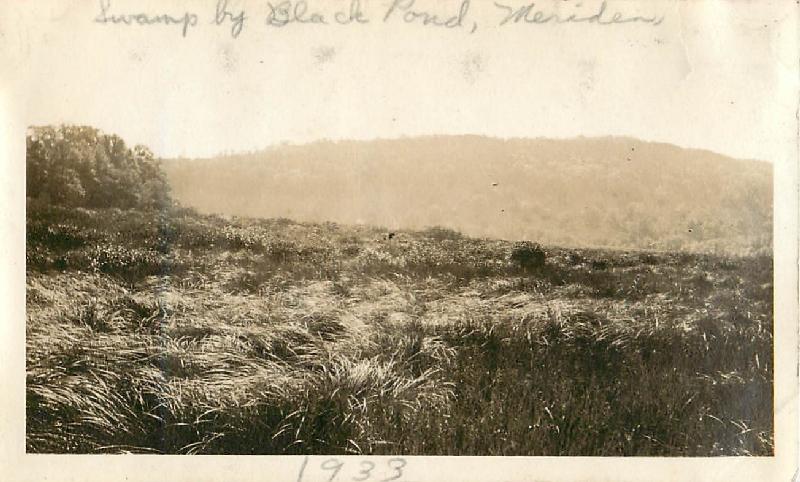 Swamp by Black Pond, Meriden,
1933